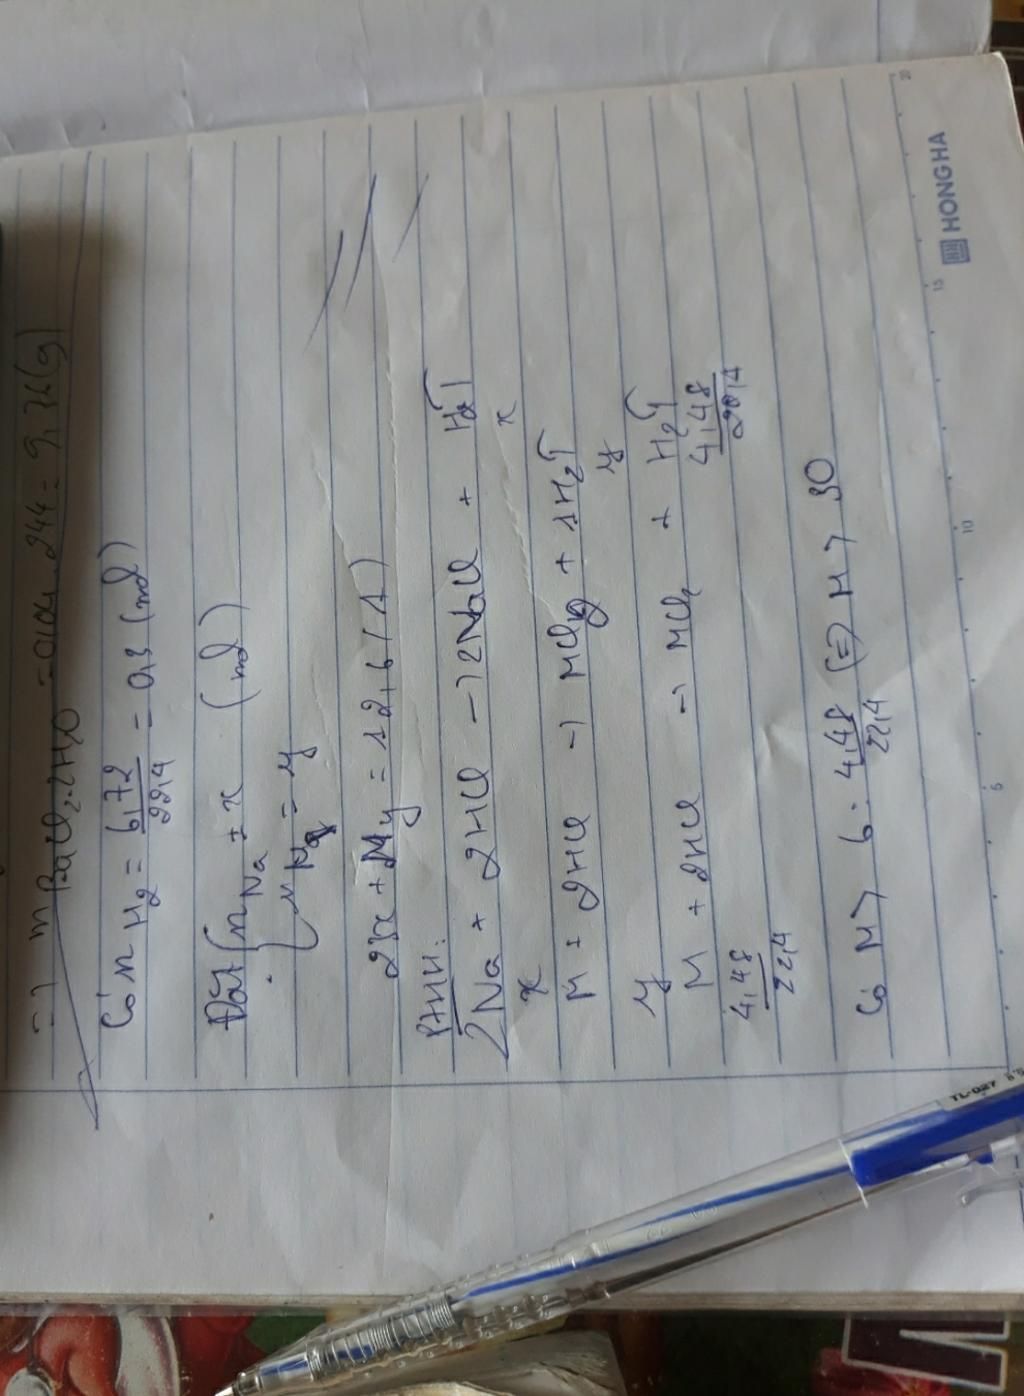 => m BaCl₂.2H₂O = 0,04.244 = 9,76(g)
Có n H₂ = 6,72/22,4 = 0,3 (mol)
Đặt { n Na = x (mol)
n = y
23x + My = 12,6 (1)
PTHH:
2Na + 2HCl -> 2NaCl + H₂↑
x x
M + 2HCl -> MCl₂ + 1H₂↑
y y
M + 2HCl -> MCl₂ + H₂↑
4,48/22,4 4,48/22,4
Có M > 6 . 4,48/22,4 (=) M > 30
HONG HA
5 10 15 20
TL-027